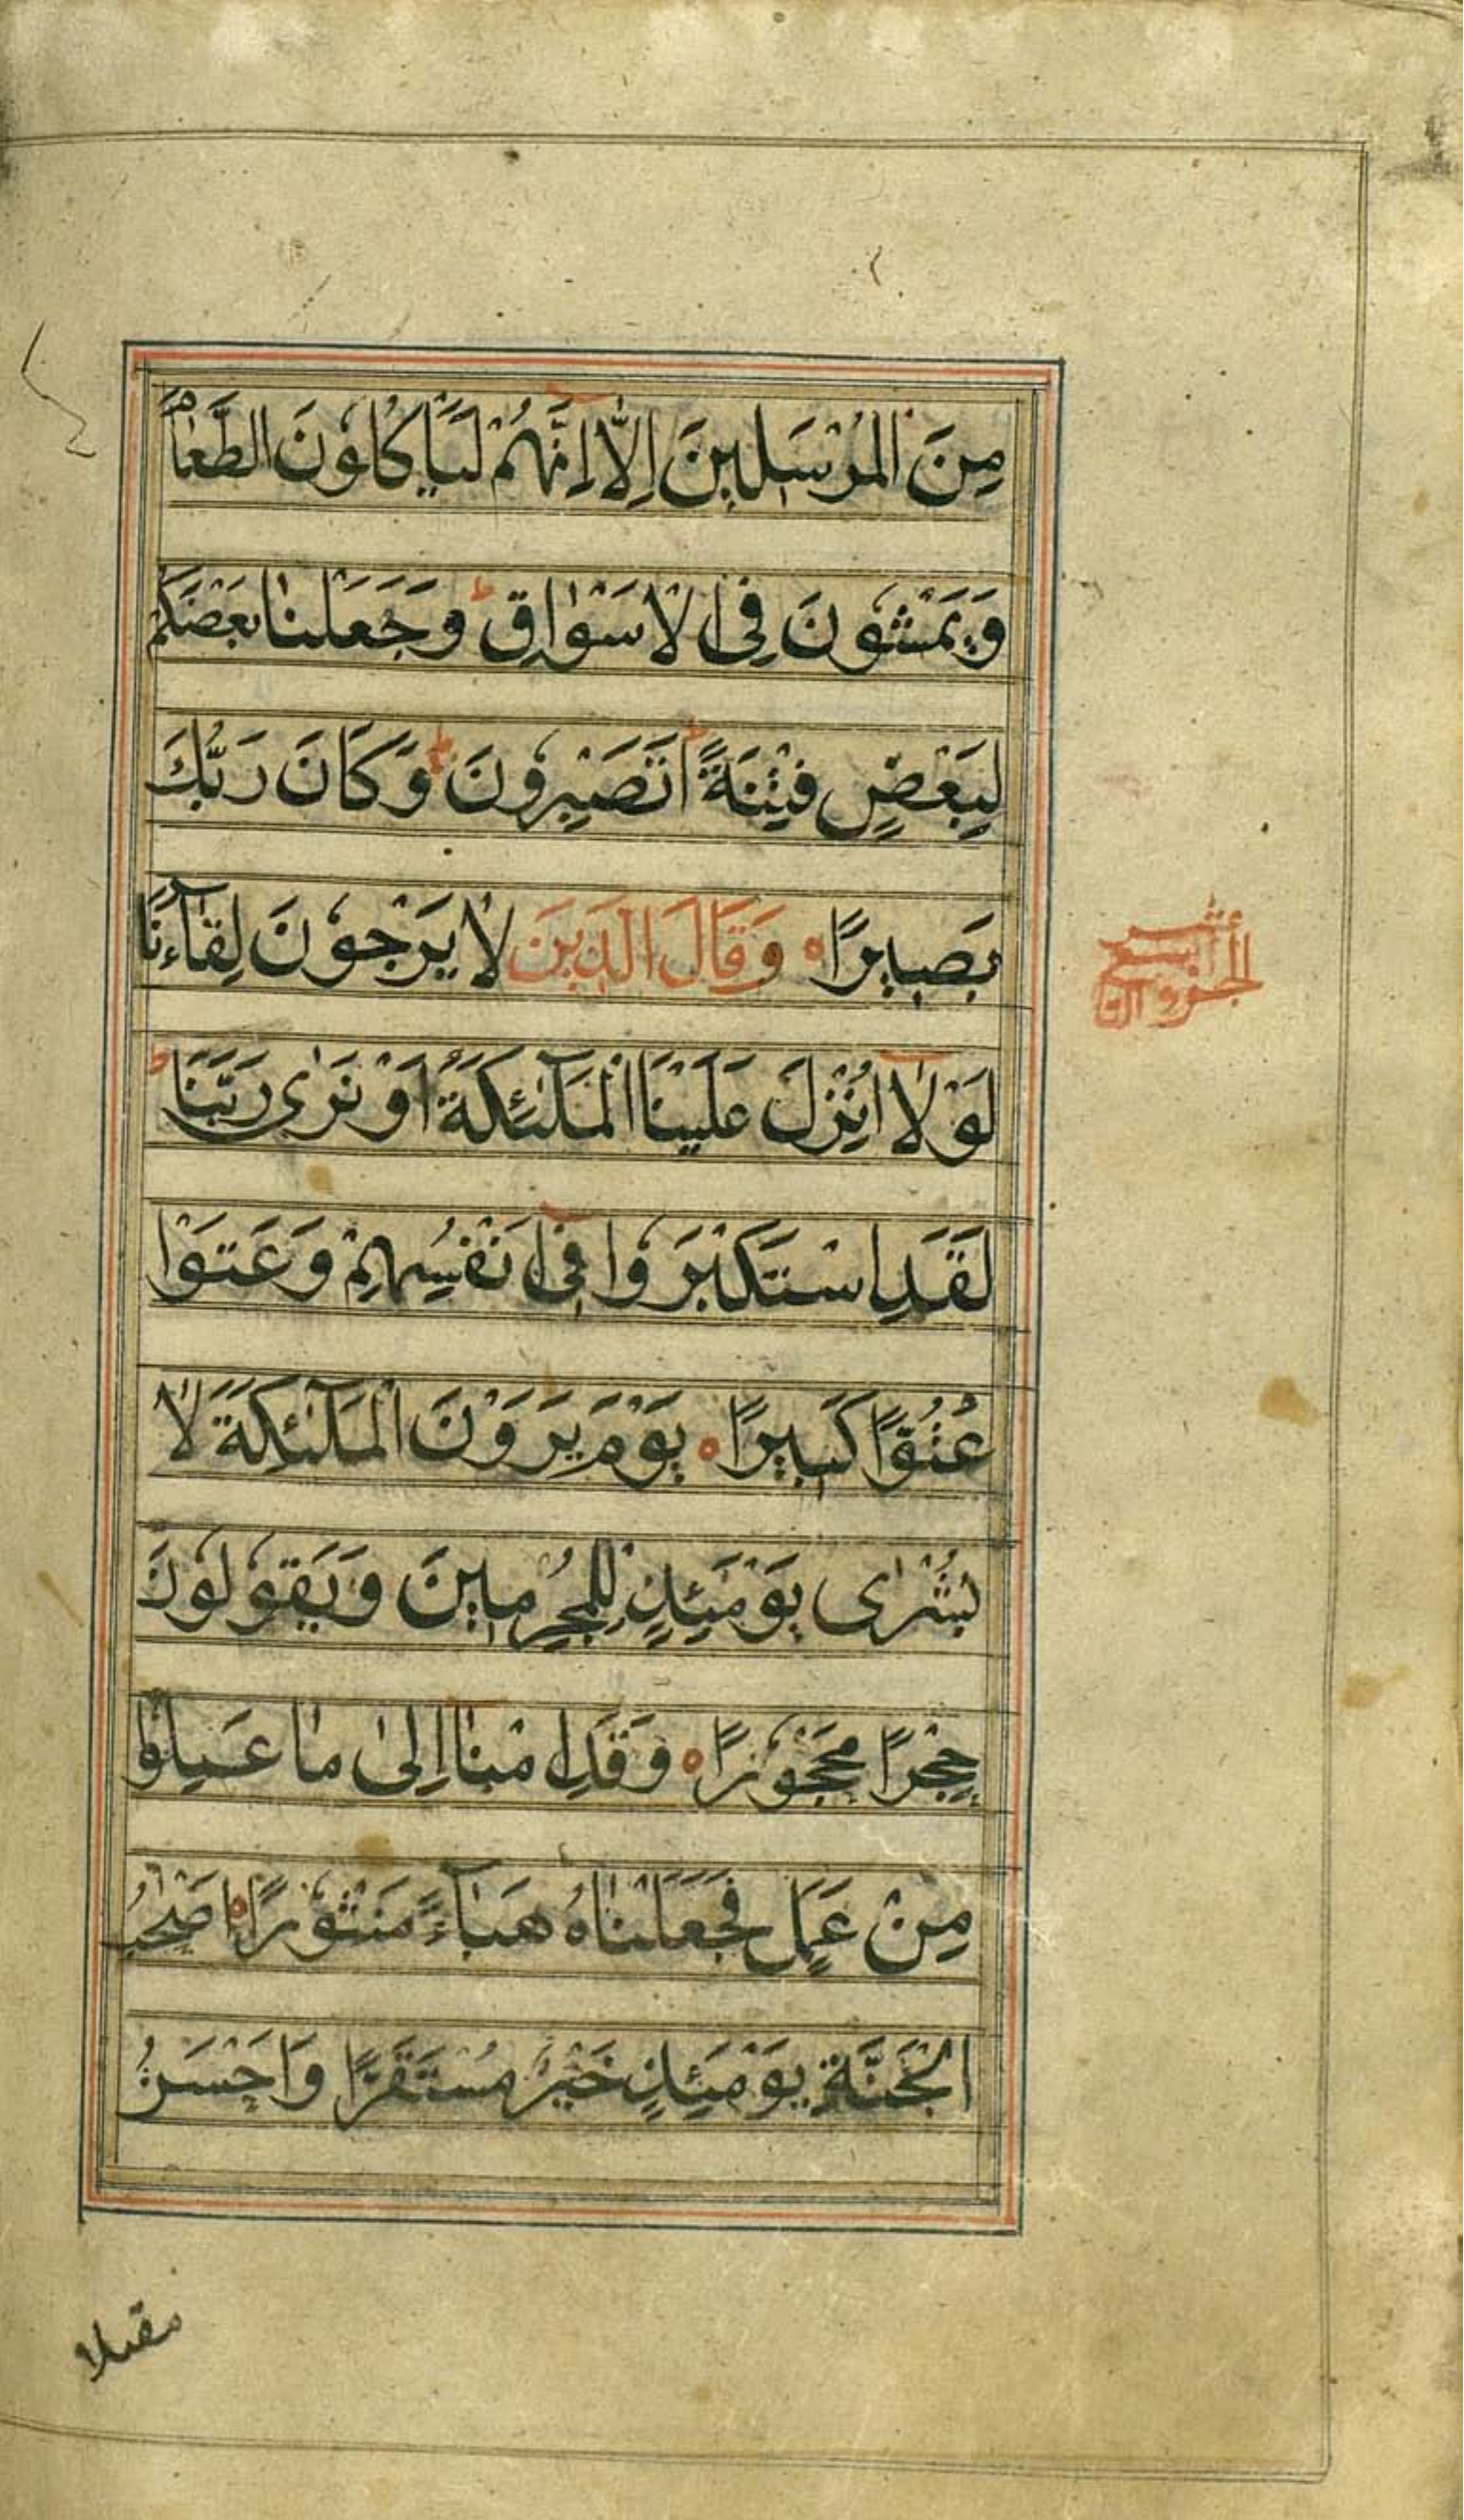 مِنَ الْمُرْسَلِينَ اِلَّا اِنَّهُمْ لَيَاكُلُونَ الطَّعَامَ
وَيَمْشُونَ فِى الْاَسْوَاقِ ط وَجَعَلْنَا بَعْضَكُمْ
لِبَعْضٍ فِتْنَةً ط اَتَصْبِرُونَ ط وَكَانَ رَبُّكَ
بَصِيرًا ه وَقَالَ الَّذِينَ لَا يَرْجُونَ لِقَآءَنَا
الجزو التاسع عشر
لَوْلَا اُنْزِلَ عَلَيْنَا الْمَلٰٓئِكَةُ اَوْ نَرٰى رَبَّنَا ط
لَقَدِ اسْتَكْبَرُوا فِى اَنْفُسِهِمْ وَعَتَوْا
عُتُوًّا كَبِيرًا ه يَوْمَ يَرَوْنَ الْمَلٰٓئِكَةَ لَا
بُشْرٰى يَوْمَئِذٍ لِلْمُجْرِمِينَ وَيَقُولُونَ
حِجْرًا مَحْجُورًا ه وَقَدِمْنَا اِلٰى مَا عَمِلُوا
مِنْ عَمَلٍ فَجَعَلْنَاهُ هَبَآءً مَنْثُورًا ه اَصْحٰبُ
الْجَنَّةِ يَوْمَئِذٍ خَيْرٌ مُسْتَقَرًّا وَاَحْسَنُ
مقيلا